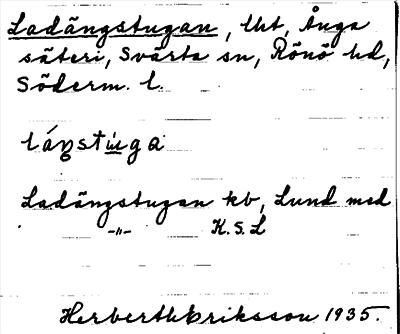 Ladängstugan, lht, Ånga
säteri, Svärta sn, Rönö hd,
Söderm. l.
láŋstuga
Ladängstugan kb, Lund med
-"- K.S.L
Herbert Eriksson 1935.